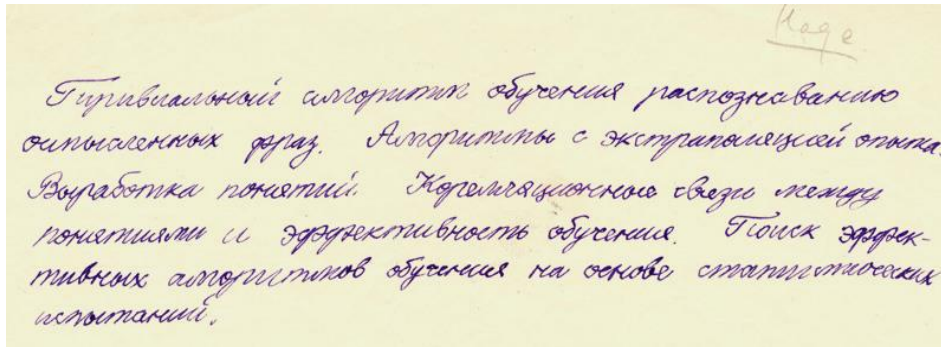 Наде
Тривиальный алгоритм обучения распознаванию
осмысленных фраз. Алгоритмы с экстраполяцией опыта.
Выработка понятий. Корелляционные связи между
понятиями и эффективность обучения. Поиск эффек-
тивных алгоритмов обучения на основе статистических
испытаний.